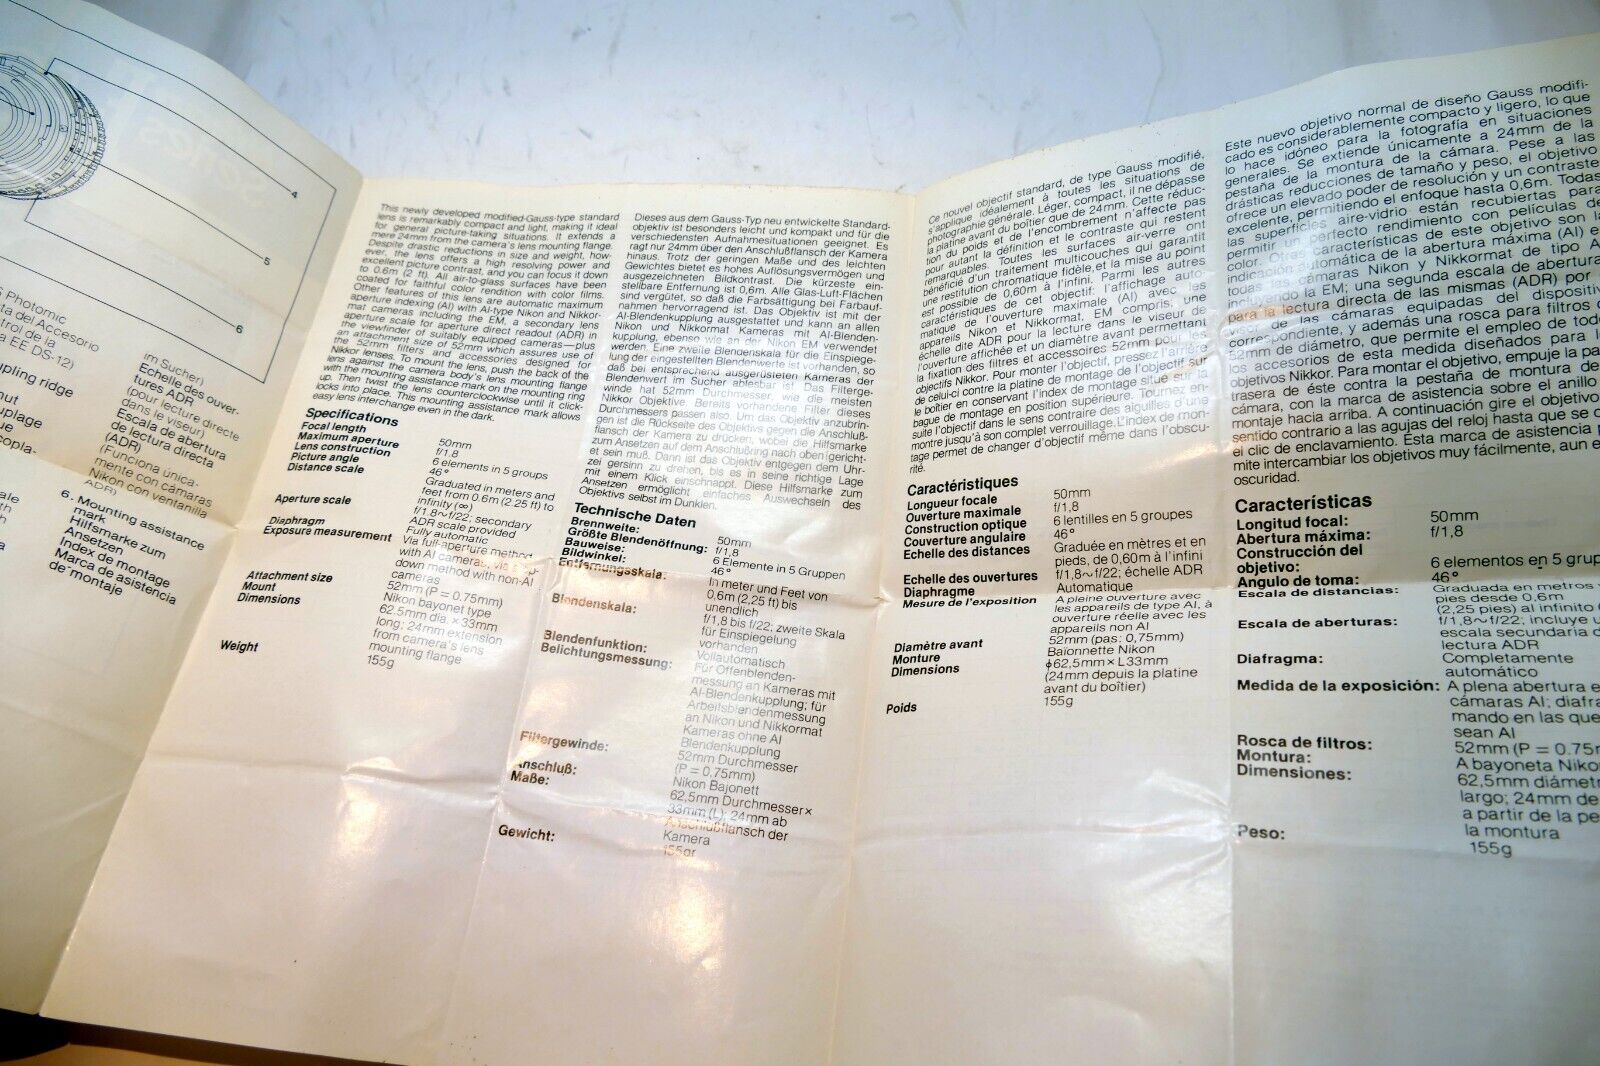 4
5
6
Photomic
ta del Accesorio
ntrol de la
a EE DS-12)
upling ridge
nut
uplage
ue
copla-
im Sucher)
Echelle des ouver-
tures ADR
(pour lecture directe
dans le viseur)
Escala de abertura
de lectura directa
(ADR)
(Funciona única-
mente con cámaras
Nikon con ventanilla
ADR)
6 - Mounting assistance
mark
Hilfsmarke zum
Ansetzen
Index de montage
Marca de asistencia
de montaje
This newly developed modified-Gauss-type standard
lens is remarkably compact and light, making it ideal
for general picture-taking situations. It extends a
mere 24mm from the camera's lens mounting flange.
Despite drastic reductions in size and weight, how-
ever, the lens offers a high resolving power and
excellent picture contrast, and you can focus it down
to 0.6m (2 ft). All air-to-glass surfaces have been
coated for faithful color rendition with color films.
Other features of this lens are automatic maximum
aperture indexing (AI) with AI-type Nikon and Nikkor-
mat cameras including the EM, a secondary lens
aperture scale for aperture direct readout (ADR) in
the viewfinder of suitably equipped cameras—plus
an attachment size of 52mm which assures use of
the 52mm filters and accessories designed for
Nikkor lenses. To mount the lens, push the back of the
lens against the camera body's lens mounting flange
with the mounting assistance mark on the mounting ring
up. Then twist the lens counterclockwise until it click-
locks into place. This mounting assistance mark allows
easy lens interchange even in the dark.
Specifications
Focal length 50mm
Maximum aperture f/1.8
Lens construction 6 elements in 5 groups
Picture angle 46°
Distance scale Graduated in meters and
feet from 0.6m (2.25 ft) to
infinity (∞)
Aperture scale f/1.8~f/22; secondary
ADR scale provided
Diaphragm Fully automatic
Exposure measurement Via full-aperture method
with AI cameras, via stop-
down method with non-AI
cameras
Attachment size 52mm (P = 0.75mm)
Mount Nikon bayonet type
Dimensions 62.5mm dia. × 33mm
long; 24mm extension
from camera's lens
mounting flange
Weight 155g
Dieses aus dem Gauss-Typ neu entwickelte Standard-
objektiv ist besonders leicht und kompakt und für die
verschiedensten Aufnahmesituationen geeignet. Es
ragt nur 24mm über den Anschlußflansch der Kamera
hinaus. Trotz der geringen Maße und des leichten
Gewichtes bietet es hohes Auflösungsvermögen und
ausgezeichneten Bildkontrast. Die kürzeste ein-
stellbare Entfernung ist 0,6m. Alle Glas-Luft-Flächen
sind vergütet, so daß die Farbsättigung bei Farbauf-
nahmen hervorragend ist. Das Objektiv ist mit der
AI-Blendenkupplung ausgestattet und kann an allen
Nikon und Nikkormat Kameras mit AI-Blenden-
kupplung, ebenso wie an der Nikon EM verwendet
werden. Eine zweite Blendenskala für die Einspiege-
lung der eingestellten Blendenwerte ist vorhanden, so
daß bei entsprechend ausgerüsteten Kameras der
Blendenwert im Sucher ablesbar ist. Das Filterge-
winde hat 52mm Durchmesser, wie die meisten
Nikkor Objektive. Bereits vorhandene Filter dieses
Durchmessers passen also. Um das Objektiv anzubrin-
gen ist die Rückseite des Objektivs gegen die Anschluß-
flansch der Kamera zu drücken, wobei die Hilfsmarke
zum Ansetzen auf dem Anschlußring nach oben gericht-
et sein muß. Dann ist das Objektiv entgegen dem Uhr-
zeiger sinn zu drehen, bis es in seine richtige Lage
mit einem Klick einschnappt. Diese Hilfsmarke zum
Ansetzen ermöglicht einfaches Auswechseln des
Objektivs selbst im Dunklen.
Technische Daten
Brennweite: 50mm
Größte Blendenöffnung: f/1,8
Bauweise: 6 Elemente in 5 Gruppen
Bildwinkel: 46°
Entfernungsskala: In meter und Feet von
0.6m (2,25 ft) bis
unendlich
Blendenskala: f/1,8 bis f/22; zweite Skala
für Einspiegelung
vorhanden
Blendenfunktion: Vollautomatisch
Belichtungsmessung: Für Offenblenden-
messung an Kameras mit
AI-Blendenkupplung; für
Arbeitsblendenmessung
an Nikon und Nikkormat
Kameras ohne AI
Blendenkupplung
Filtergewinde: 52mm Durchmesser
(P = 0.75mm)
Anschluß: Nikon Bajonett
Maße: 62,5mm Durchmesser×
33mm (L); 24mm ab
Anschlußflansch der
Kamera
Gewicht: 155gr
Ce nouvel objectif standard, de type Gauss modifié,
s'applique idéalement à toutes les situations de
photographie générale. Léger, compact, il ne dépasse
la platine avant du boîtier que de 24mm. Cette réduc-
tion du poids et de l'encombrement n'affecte pas
pour autant la définition et le contraste qui restent
remarquables. Toutes les surfaces air-verre ont
bénéficié d'un traitement multicouches qui garantit
une restitution chromatique fidèle, et la mise au point
est possible de 0,60m à l'infini. Parmi les autres
caractéristiques de cet objectif: l'affichage auto-
matique de l'ouverture maximale (AI) avec les
appareils Nikon et Nikkormat, EM compris; une
échelle dite ADR pour la lecture dans le viseur de
l'ouverture affichée et un diamètre avant permettant
la fixation des filtres et accessoires 52mm pour les
objectifs Nikkor. Pour monter l'objectif, pressez l'arrière
de celui-ci contre la platine de montage de l'objectif sur
le boîtier en conservant l'index de montage situé sur la
bague de montage en position supérieure. Tournez en-
suite l'objectif dans le sens contraire des aiguilles d'une
montre jusqu'à son complet verrouillage. L'index de mon-
tage permet de changer d'objectif même dans l'obscu-
rité.
Caractéristiques
Longueur focale 50mm
Ouverture maximale f/1,8
Construction optique 6 lentilles en 5 groupes
Couverture angulaire 46°
Echelle des distances Graduée en mètres et en
pieds, de 0,60m à l'infini
Echelle des ouvertures f/1,8~f/22; échelle ADR
Diaphragme Automatique
Mesure de l'exposition A pleine ouverture avec
les appareils de type AI, à
ouverture réelle avec les
appareils non AI
Diamètre avant 52mm (pas: 0,75mm)
Monture Baïonnette Nikon
Dimensions ϕ62,5mm × L33mm
(24mm depuis la platine
avant du boîtier)
Poids 155g
Este nuevo objetivo normal de diseño Gauss modifi-
cado es considerablemente compacto y ligero, lo que
lo hace idóneo para la fotografía en situaciones
generales. Se extiende únicamente a 24mm de la
pestaña de la montura de la cámara. Pese a las
drásticas reducciones de tamaño y peso, el objetivo
ofrece un elevado poder de resolución y un contraste
excelente, permitiendo el enfoque hasta 0,6m. Todas
las superficies aire-vidrio están recubiertas para
permitir un perfecto rendimiento con películas de
color. Otras características de este objetivo son la
indicación automática de la abertura máxima (AI) e
todas las cámaras Nikon y Nikkormat de tipo A
incluyendo la EM; una segunda escala de abertura
para la lectura directa de las mismas (ADR) por
sor de las cámaras equipadas del dispositiv
correspondiente, y además una rosca para filtros d
52mm de diámetro, que permite el empleo de todo
los accesorios de esta medida diseñados para l
objetivos Nikkor. Para montar el objetivo, empuje la pa
trasera de éste contra la pestaña de montura de
cámara, con la marca de asistencia sobre el anillo
montaje hacia arriba. A continuación gire el objetivo
sentido contrario a las agujas del reloj hasta que se o
el clic de enclavamiento. Esta marca de asistencia p
mite intercambiar los objetivos muy fácilmente, aun e
oscuridad.
Características
Longitud focal: 50mm
Abertura máxima: f/1,8
Construcción del
objetivo: 6 elementos en 5 grup
Angulo de toma: 46°
Escala de distancias: Graduada en metros y
pies desde 0,6m
(2,25 pies) al infinito
Escala de aberturas: f/1,8~f/22; incluye u
escala secundaria d
lectura ADR
Diafragma: Completamente
automático
Medida de la exposición: A plena abertura e
cámaras AI; diafra
mando en las que
sean AI
Rosca de filtros: 52mm (P = 0.75m
Montura: A bayoneta Niko
Dimensiones: 62,5mm diámet
largo; 24mm de
a partir de la pe
la montura
Peso: 155g